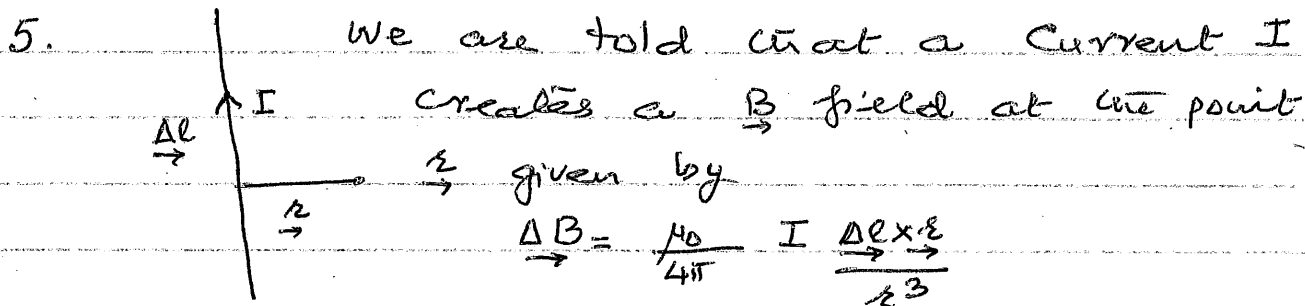 5. We are told that a Current I
I creates a B⃗ field at the point
Δl⃗
r⃗ r⃗ given by
ΔB⃗ = μ₀/4π I Δl⃗ × r⃗ / r³